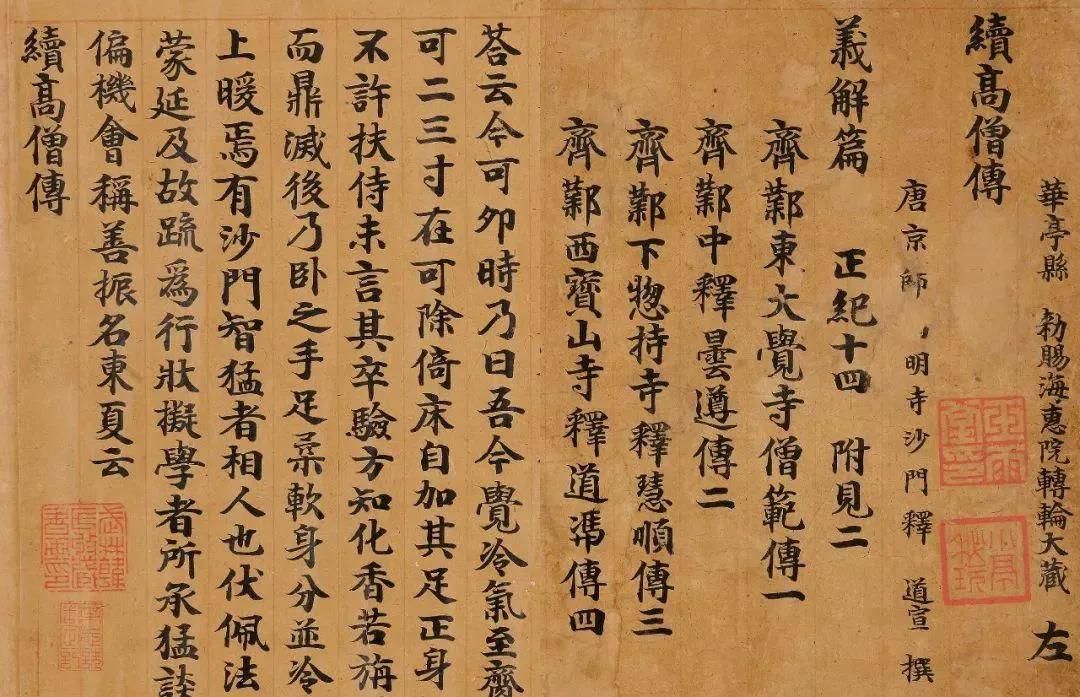 華亭縣 勑賜海惠院轉輪大藏 左
續高僧傳
唐京師 明寺沙門釋 道宣 撰
義解篇 正紀十四 附見二
齊鄴東大覺寺僧範傳一
齊鄴中釋曇遵傳二
齊鄴下惣持寺釋慧順傳三
齊鄴西寶山寺釋道馮傳四
荅云今可夘時乃曰吾今覺冷氣至齊
可二三寸在可除倚床自加其足正身
不許扶侍未言其卒驗方知化香若旃
而鼎滅後乃卧之手足柔軟身分並冷
上暖焉有沙門智猛者相人也伏佩法
蒙延及故䟽爲行狀擬學者所承猛談
偏機會稱善振名東夏云
續高僧傳